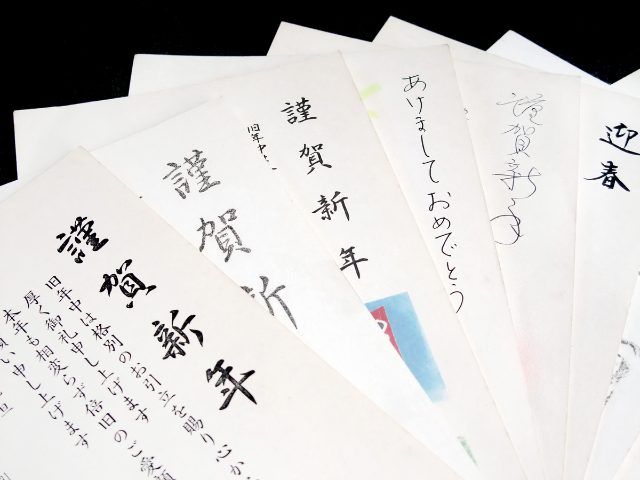 謹賀新年
旧年中は格別のお引立を賜り心か
厚く御礼申し上げます
本年も相変らず倍旧のご愛顧
願い申し上げます
謹賀新
謹賀新年
旧年中
あけまして おめでとう
謹賀新年
迎春